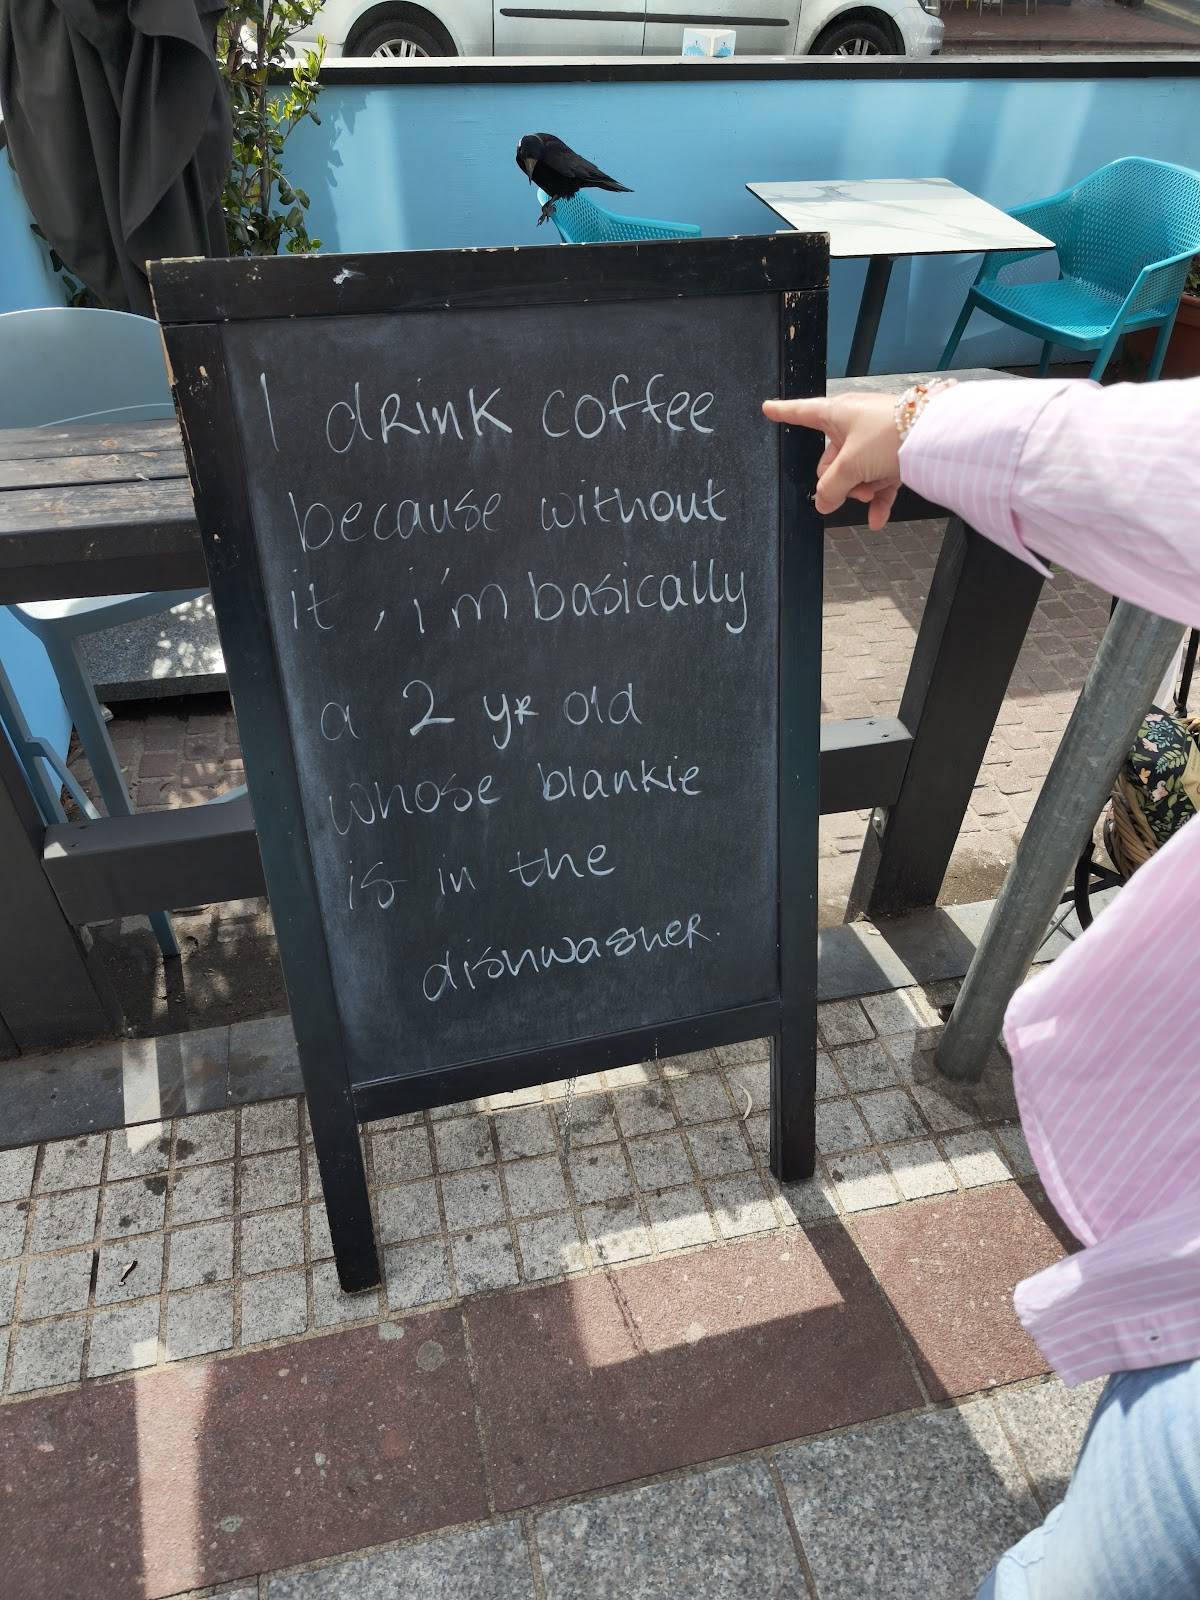 I drink coffee
because without
it, i'm basically
a 2 yr old
whose blankie
is in the
dishwasher.